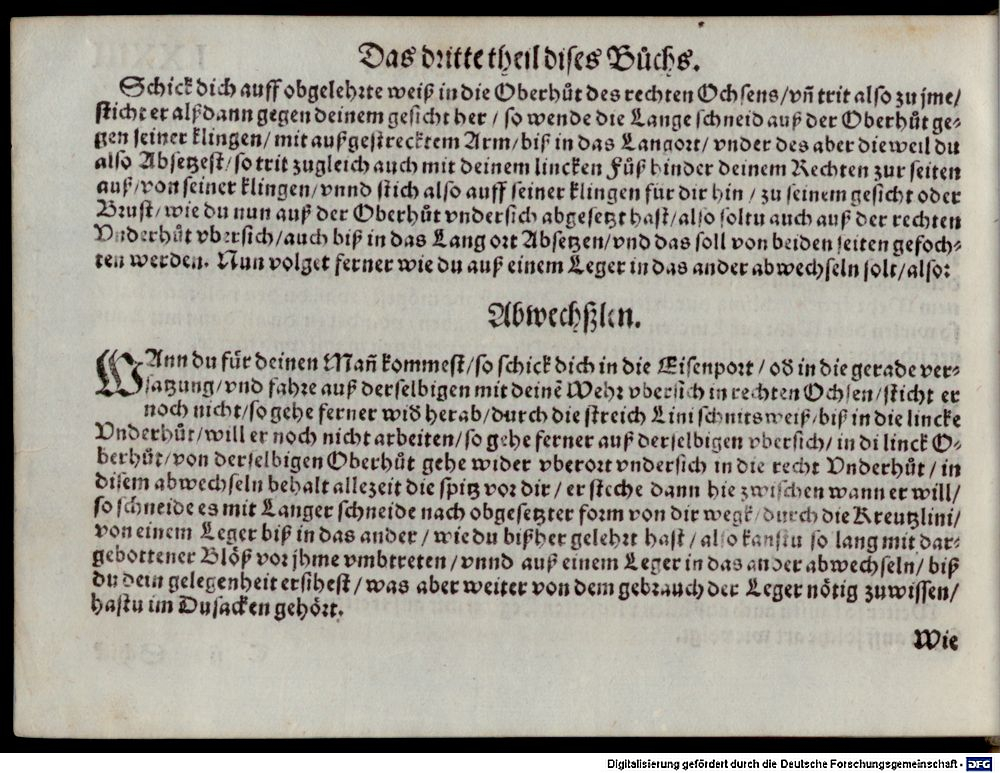 Das dritte theil dises Bůchs.
Schick dich auff obgelehrte weiß in die Oberhůt des rechten Ochsens/ vñ trit also zu jme/
sticht er alßdann gegen deinem gesicht her / so wende die Lange schneid auß der Oberhůt ge-
gen seiner klingen/ mit außgestrecktem Arm/ biß in das Langort/ vnder des aber dieweil du
also Absetzest/ so trit zugleich auch mit deinem lincken Fůß hinder deinem Rechten zur seiten
auß/ von seiner klingen/ vnnd stich also auff seiner klingen für dir hin / zu seinem gesicht oder
Brust/ wie du nun auß der Oberhůt vndersich abgesetzt hast/ also soltu auch auß der rechten
Vnderhůt vbersich/ auch biß in das Lang ort Absetzen/ vnd das soll von beiden seiten gefoch-
ten werden. Nun volget ferner wie du auß einem Leger in das ander abwechseln solt/ also:
Abwechßlen.
WAnn du für deinen Mañ kommest/ so schick dich in die Eisenport / od̄ in die gerade ver-
satzung/ vnd fahre auß derselbigen mit deinē Wehr vbersich in rechten Ochsen/ sticht er
noch nicht/ so gehe ferner wid̄ herab/ durch die streich Lini schnitsweiß/ biß in die lincke
Vnderhůt/ will er noch nicht arbeiten/ so gehe ferner auß derselbigen vbersich/ in di linck O-
berhůt/ von derselbigen Oberhůt gehe wider vberort vndersich in die recht Vnderhůt / in
disem abwechseln behalt allezeit die spitz vor dir / er steche dann hie zwischen wann er will/
so schneide es mit Langer schneide nach obgesetzter form von dir wegk/ durch die Kreutzlini/
von einem Leger biß in das ander / wie du bißher gelehrt hast / also kanstu so lang mit dar-
gebottener Blöß vor jhme vmbtreten/ vnnd auß einem Leger in das ander abwechseln/ biß
du dein gelegenheit ersihest/ was aber weiter von dem gebrauch der Leger nötig zuwissen/
hastu im Dusacken gehört.
Wie
Digitalisierung gefördert durch die Deutsche Forschungsgemeinschaft - DFG